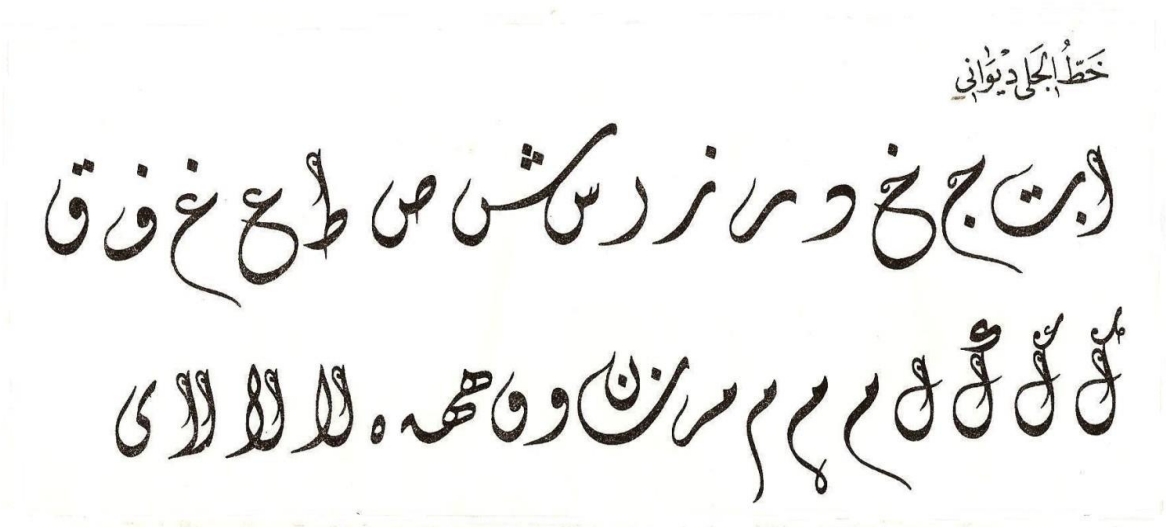 خَطُّ الجَلي ديْوَاني
ا ب ت ج خ د ر ر ز ر س ش ص ط ع غ ف ق
ك ك ك ل م م م م ن ن و و هههه ه لا لا لا ى